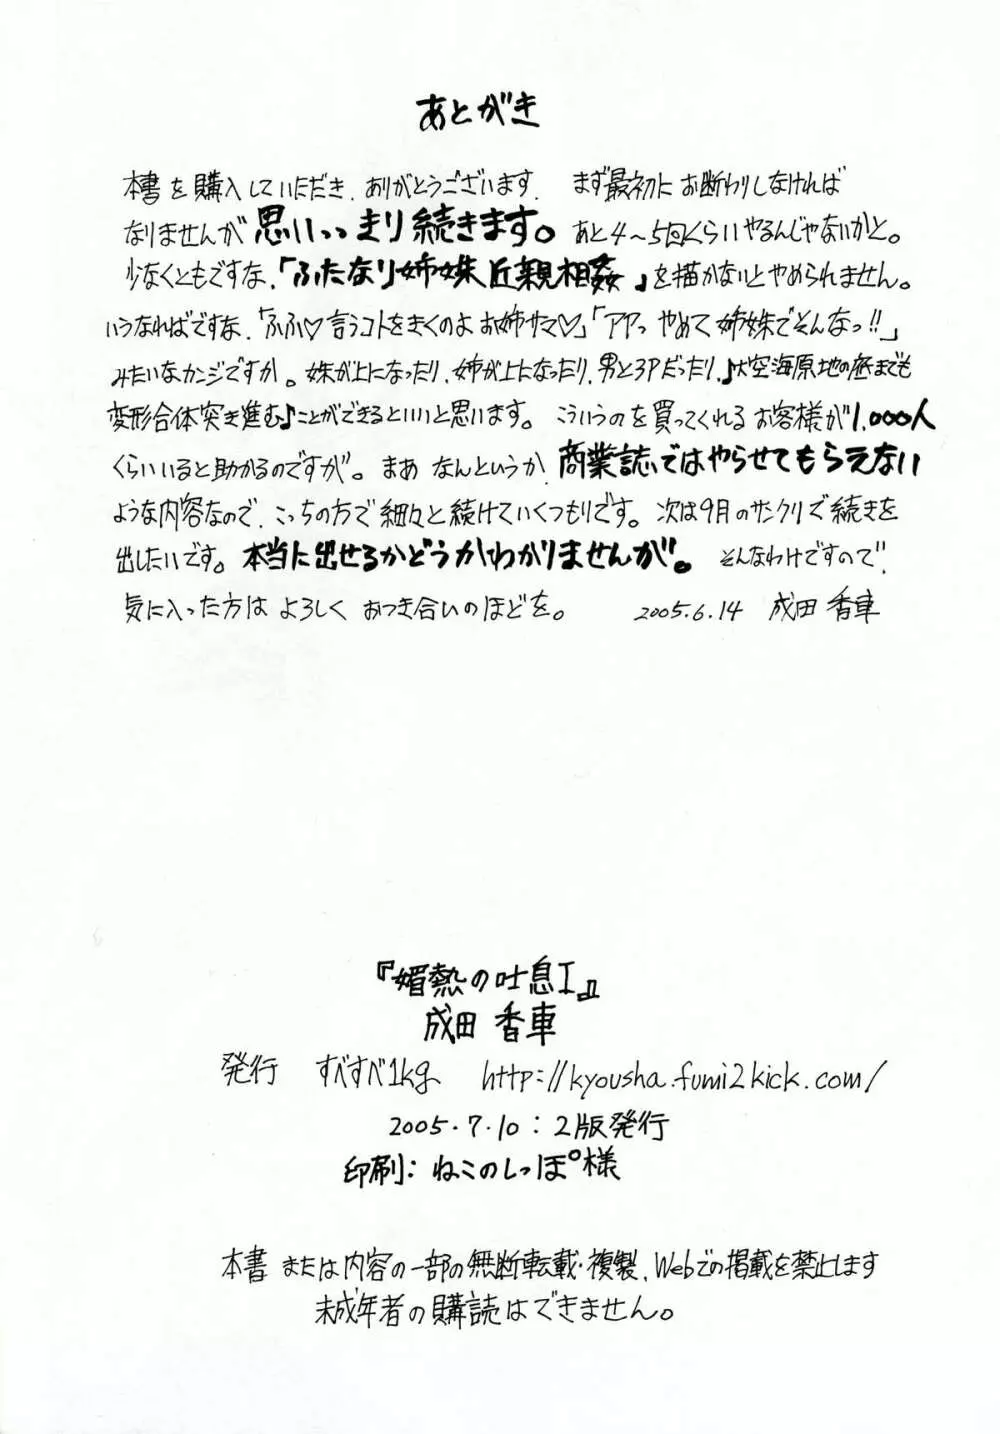 あとがき
本書を購入していただき、ありがとうございます。 まず最初にお断わりしなければ
なりませんが思いっっきり続きます。あと4～5回くらいやるんじゃないかと。
少なくともですな、「ふたなり姉妹近親相姦」を描かないとやめられません。
いうなればですな、「ふふ♡言うコトをきくのよお姉サマ♡」「アヤっ やめて 姉妹でそんなっ!!」
みたいなカンジですか。妹が上になったり、姉が上になったり、男と3Pだったり、♪大空海原地の底までも
変形合体突き進む♪ことができるといいと思います。 こういうのを買ってくれるお客様が1,000人
くらいいると助かるのですが。まあ なんというか、商業誌ではやらせてもらえない
ような内容なので、こっちの方で細々と続けていくつもりです。次は9月のサンクリで続きを
出したいです。本当に出せるかどうかわかりませんが。 そんなわけですので、
気に入った方は よろしく おつき合いのほどを。 2005.6.14 成田 香車
『媚熱の吐息I』
成田 香車
発行 すべすべ1kg http://kyousha.fumi2kick.com/
2005.7.10：2版発行
印刷：ねこのしっぽ様
本書または内容の一部の無断転載・複製、Webでの掲載を禁止します
未成年者の購読はできません。